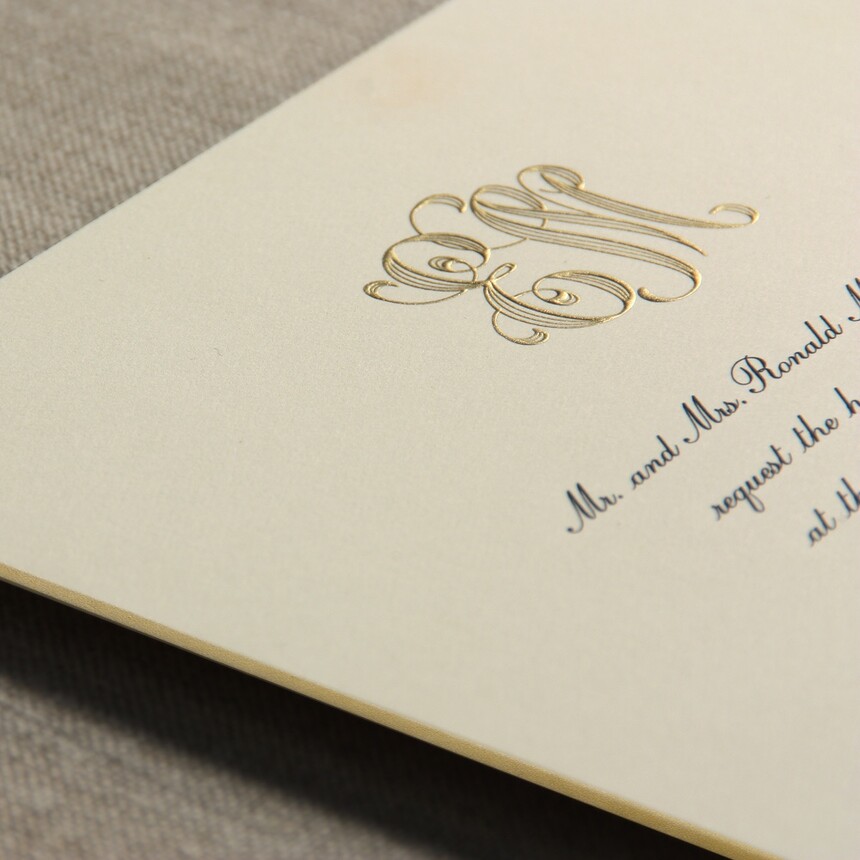 EM
Mr. and Mrs. Ronald M
request the h
at th